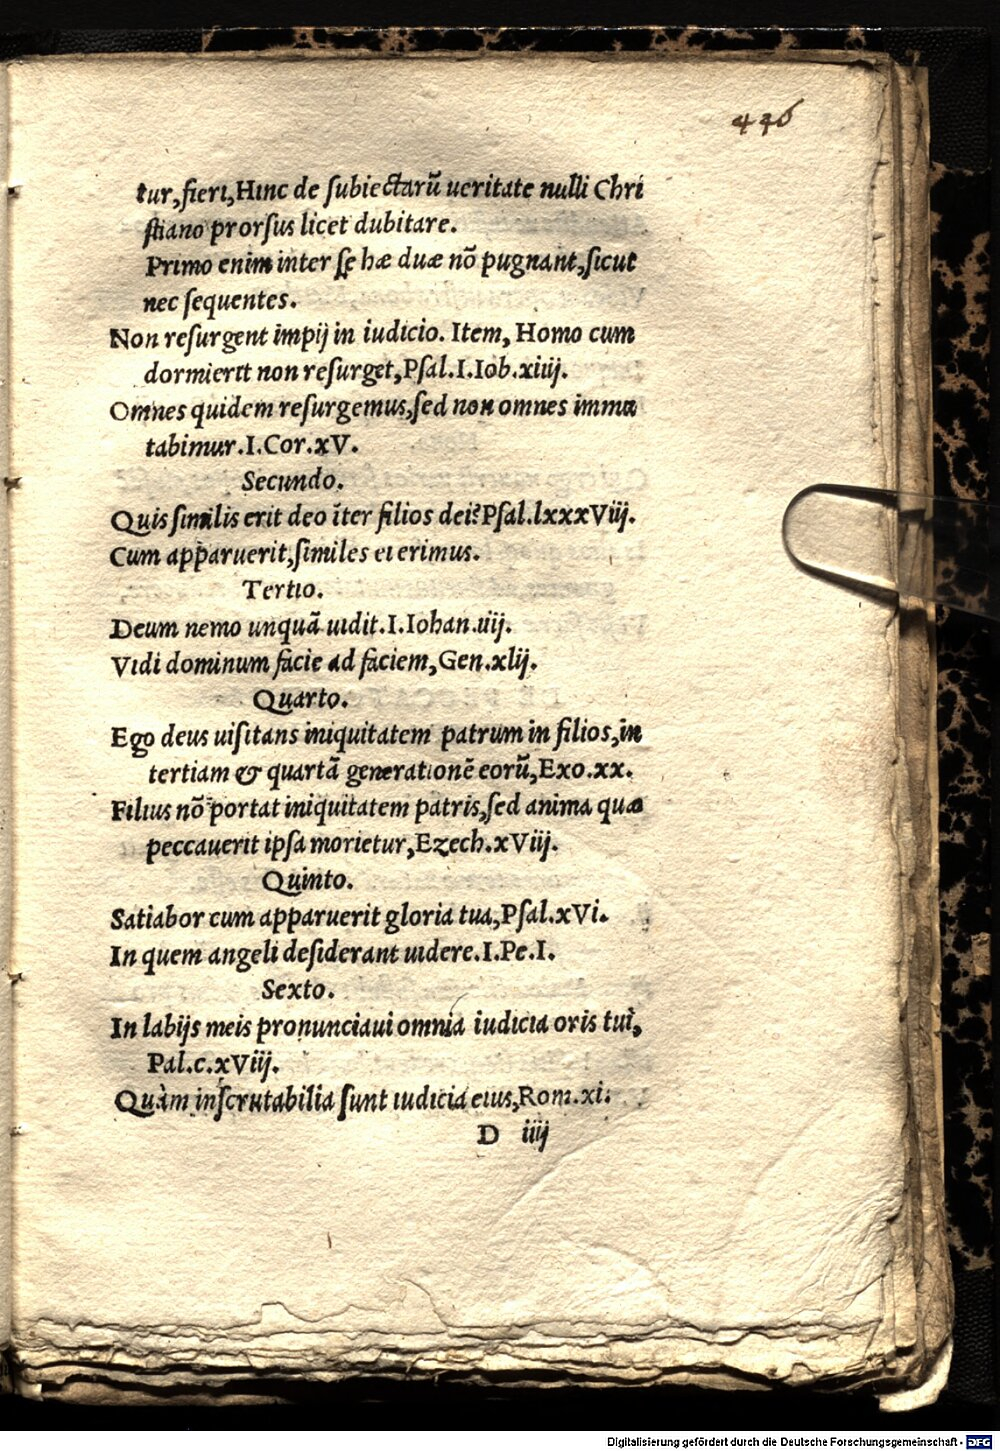 446
tur, fieri, Hinc de ſubiectarũ ueritate nulli Chri
ſtiano prorſus licet dubitare.
Primo enim inter ſe hæ duæ nõ pugnant, ſicut
nec ſequentes.
Non reſurgent impij in iudicio. Item, Homo cum
dormierit non reſurget, Pſal.I.Iob.xiiij.
Omnes quidem reſurgemus, ſed non omnes immu
tabimur.I.Cor.xV.
Secundo.
Quis ſimilis erit deo ĩter filios dei? Pſal.lxxxViij.
Cum apparuerit, ſimiles ei erimus.
Tertio.
Deum nemo unquã uidit.I.Iohan.iiij.
Vidi dominum facie ad faciem, Gen.xlij.
Quarto.
Ego deus uiſitans iniquitatem patrum in filios, in
tertiam & quartã generationẽ eorũ, Exo.xx.
Filius nõ portat iniquitatem patris, ſed anima quæ
peccauerit ipſa morietur, Ezech.xViij.
Quinto.
Satiabor cum apparuerit gloria tua, Pſal.xVi.
In quem angeli deſiderant uidere.I.Pe.I.
Sexto.
In labijs meis pronunciaui omnia iudicia oris tui,
Pal.c.xViij.
Quàm inſcrutabilia ſunt iudicia eius, Rom.xi.
D iiij
Digitalisierung gefördert durch die Deutsche Forschungsgemeinschaft - DFG